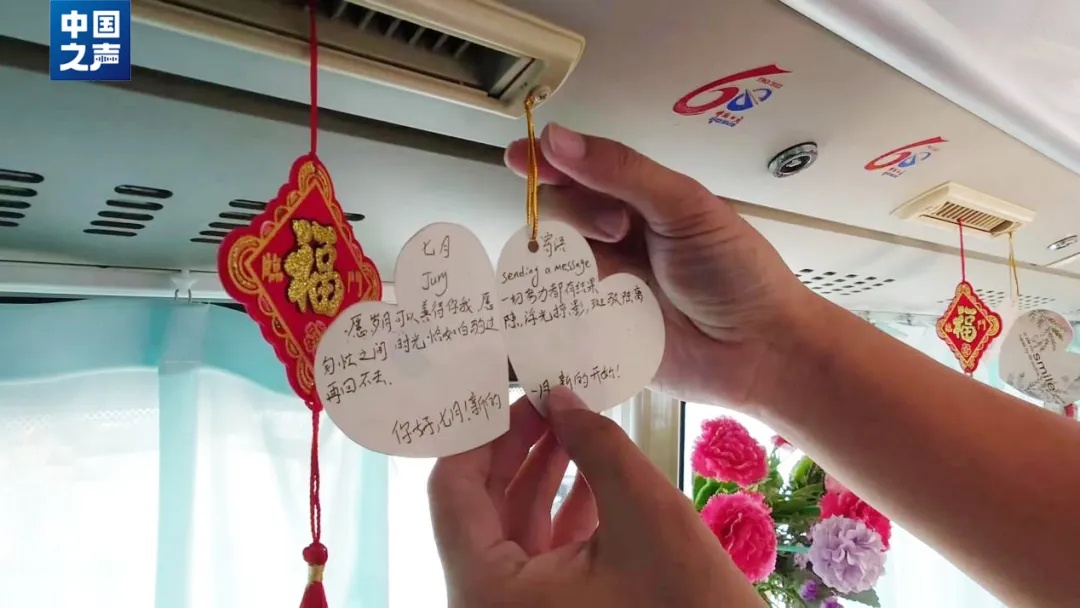 中国
之声
福
臨
门
七月
Juny
愿岁月可以善待你我,愿
匆忙之间 时光恰如白驹过
再回不去.
你好,七月!新的
寄语
sending a message
一切努力都有结果
隙,浮光掠影,
一月 新的开始!
60
60
福
smile